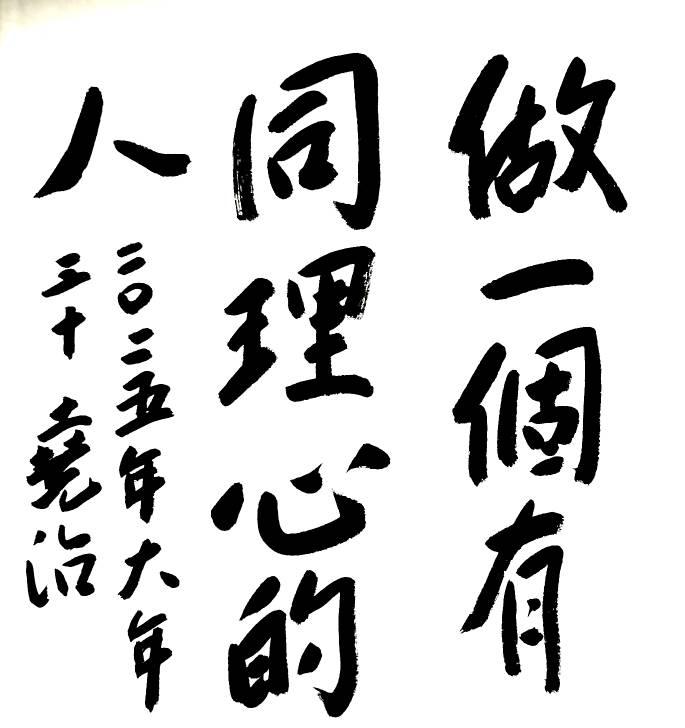 做一個有
同理心的
人
二〇二五年大年
三十 堯治